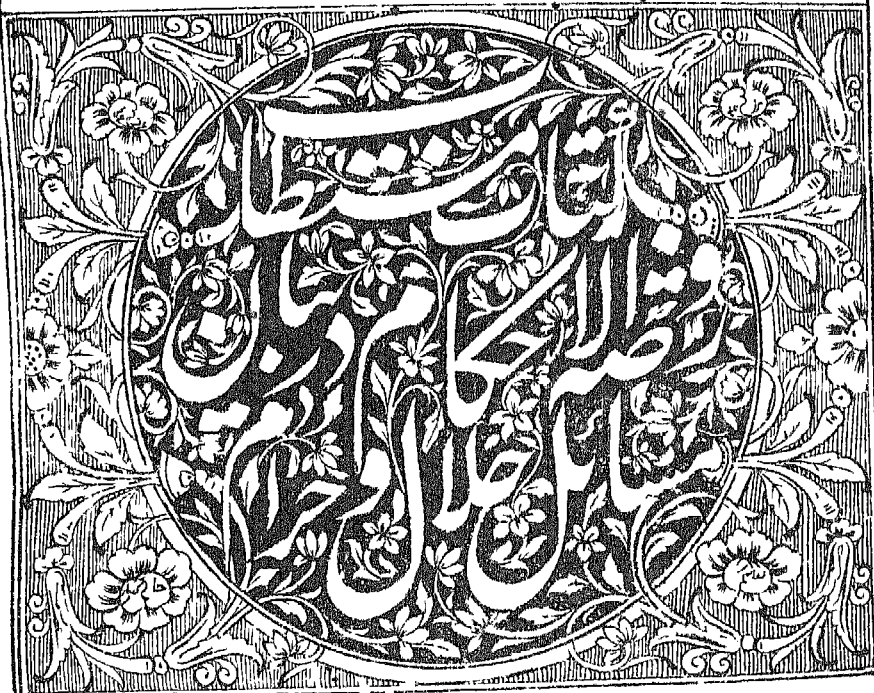 کتاب مستطاب
روضة الاحکام در بیان
مسائل حلال و حرام